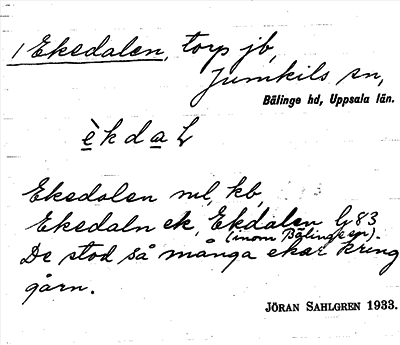 1 Ekedalen, torp jb,
Jumkils sn,
Bälinge hd, Uppsala län.
èkdaɭ
Ekedalen ml, kb,
Ekedaln ek, Ekdalen lj 83
(inom Bälinge sn).
De stod så många ekar kring
gårn.
JÖRAN SAHLGREN 1933.